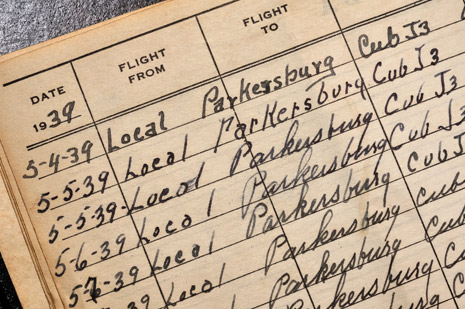 DATE FLIGHT FROM FLIGHT TO
1939
5-4-39 Local Parkersburg Cub J3
5-5-39 Local Parkersburg Cub J3
5-5-39 Local Parkersburg Cub J3
5-6-39 Local Parkersburg Cub J3
5-7-39 Local Parkersburg Cub J3
-39 Local Parkersburg Cub
Parkersburg Cub